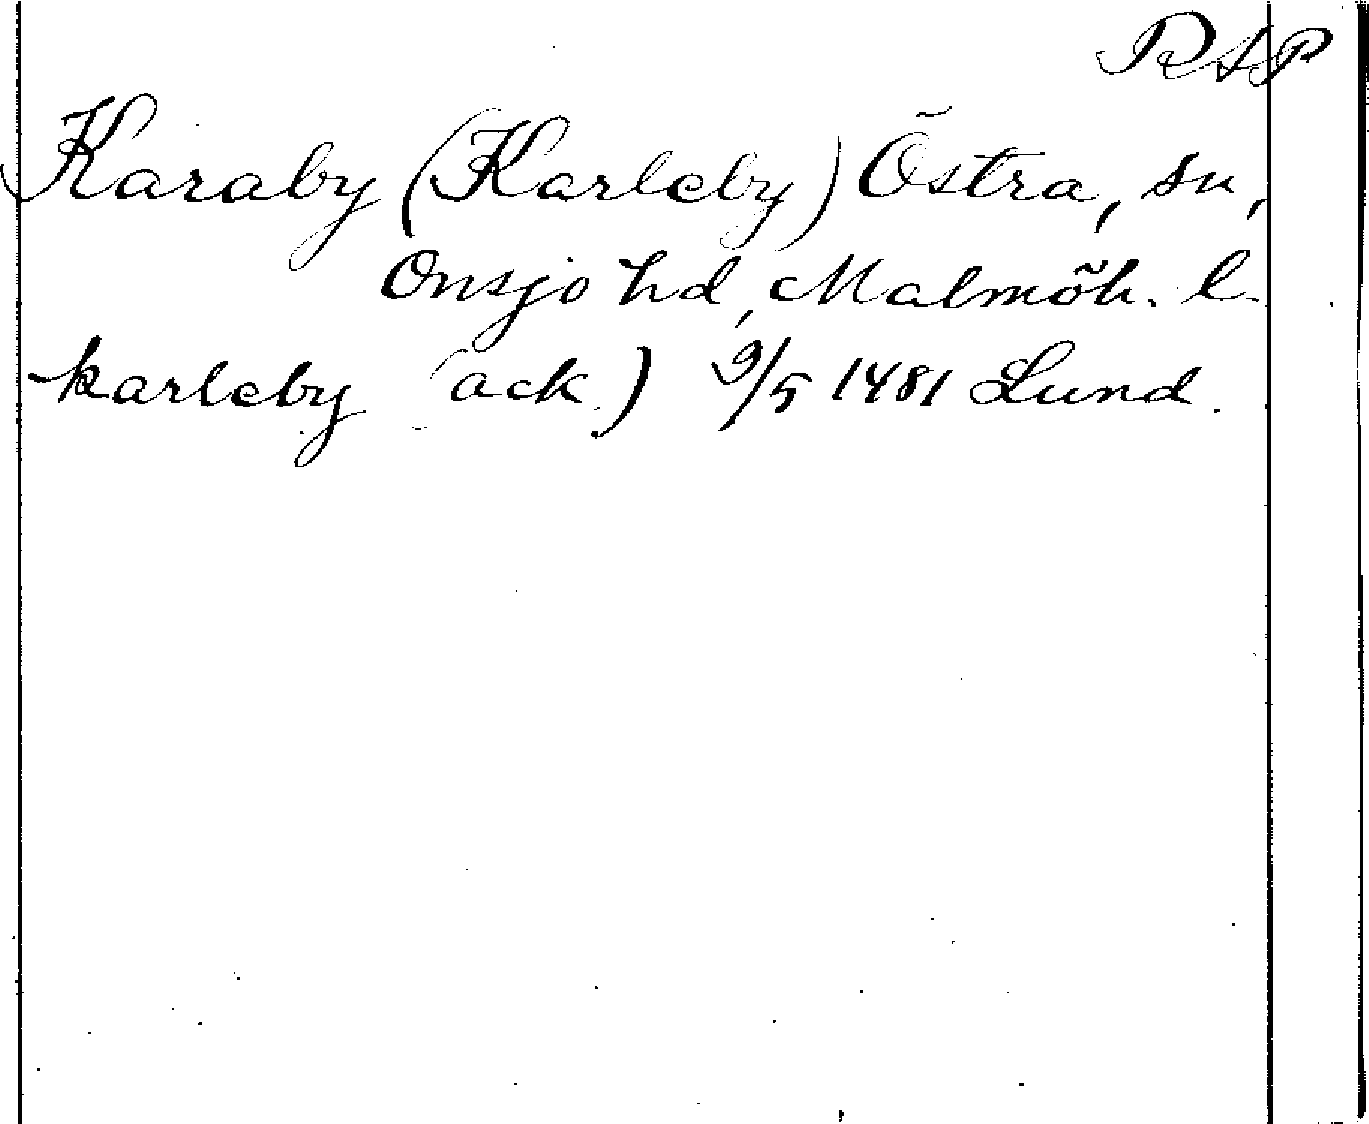 RAP
Karaby (Karleby) Östra, sn,
Onsjö hd, Malmöh. l.
karleby (ack.) 9/5 1481 Lund.